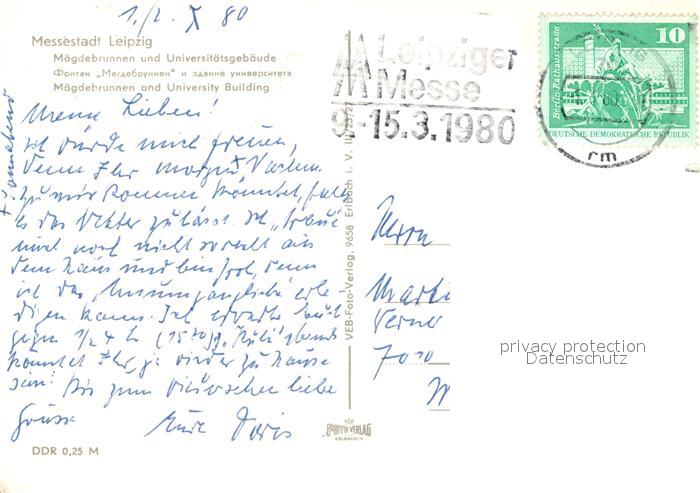 1./2. X 80
Messestadt Leipzig
Mägdebrunnen und Universitätsgebäude
Фонтан „Мегдебруннен" и здание университета
Mägdebrunnen and University Building
Meine Lieben!
Ich würde mich freuen,
wenn Ihr morgen
Sonnabend
zu mir kommen könntet, falls
es das Wetter zuläßt. Ich „traue"
mich noch nicht so recht aus
dem Haus und bin froh, wenn
ich das „Unumgängliche" erle-
digen kann. Ich erwarte Euch
gegen 1/2 4 h (15 30)
könntet Ihr ja wieder zu Hause
sein. Bis zum Wiedersehen liebe
Grüsse Eure Doris
DDR 0,25 M
VEB-Foto-Verlag, 9658 Erlbach i. V.
ERLBACH/V
Leipziger
Messe
9.-15.3.1980
10
Berlin-Rathausstraße
DEUTSCHE DEMOKRATISCHE REPUBLIK
rm
Herrn
Marti
Werner
7010
privacy protection
Datenschutz